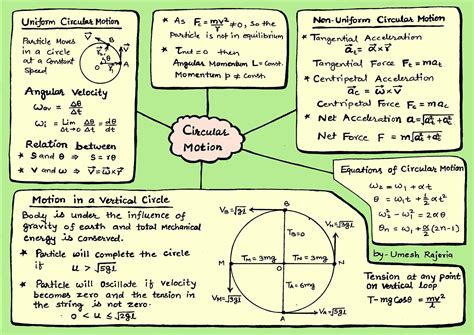 Uniform Circular Motion
Particle Moves
in a Circle
at a Constant
Speed
B
V
Δθ
θ
A
Angular Velocity
ωav = Δθ/Δt
ωi = Lim Δt→0 Δθ/Δt = dθ/dt
Relation between
* S and θ ⇒ S = rθ
* V and ω ⇒ V⃗ = ω⃗×r⃗
* As Fc = mv²/r ≠ 0, So the
particle is not in equilibrium
* τnet = 0 then
Angular Momentum L = Const.
Momentum P ≠ Const.
Circular
Motion
Non-Uniform Circular Motion
* Tangential Acceleration
a⃗t = α⃗×r⃗
Tangential Force Ft = mat
* Centripetal Acceleration
a⃗c = ω⃗×v⃗
Centripetal Force Fc = mac
* Net Acceleration a = √(at²+ac²)
Net Force F = m√(at²+ac²)
Equations of Circular Motion
ω2 = ω1 + αt
θ = ω1t + ½αt²
ω2² - ω1² = 2αθ
θn = ω1 + α/2(2n-1)
by - Umesh Rajoria
Motion in a Vertical Circle
Body is under the influence of
gravity of earth and total Mechanical
energy is conserved.
* Particle will complete the circle
if u > √5gl
* Particle will oscillate if velocity
becomes zero and the tension in
the string is not zero.
0 < u ≤ √2gl
VB=√gl
B
TB=0
VM=√3gl
M
TM=3mg
O
TN=3mg
N
VN=√3gl
TA=6mg
A
VA=√5gl
Tension at any point
on Vertical Loop
T-mgCosθ = mv²/l